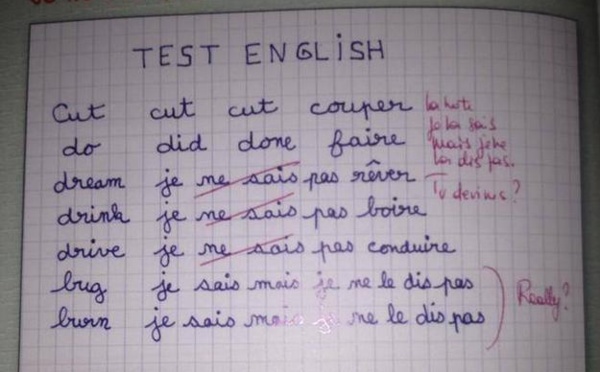 TEST ENGLISH
Cut cut cut couper
do did done faire
dream je ne sais pas rêver
drink je ne sais pas boire
drive je ne sais pas conduire
bug je sais mais je ne le dis pas
burn je sais mais je ne le dis pas
La note
je la sais
mais je ne
la dis pas.
Tu devines ?
Really?